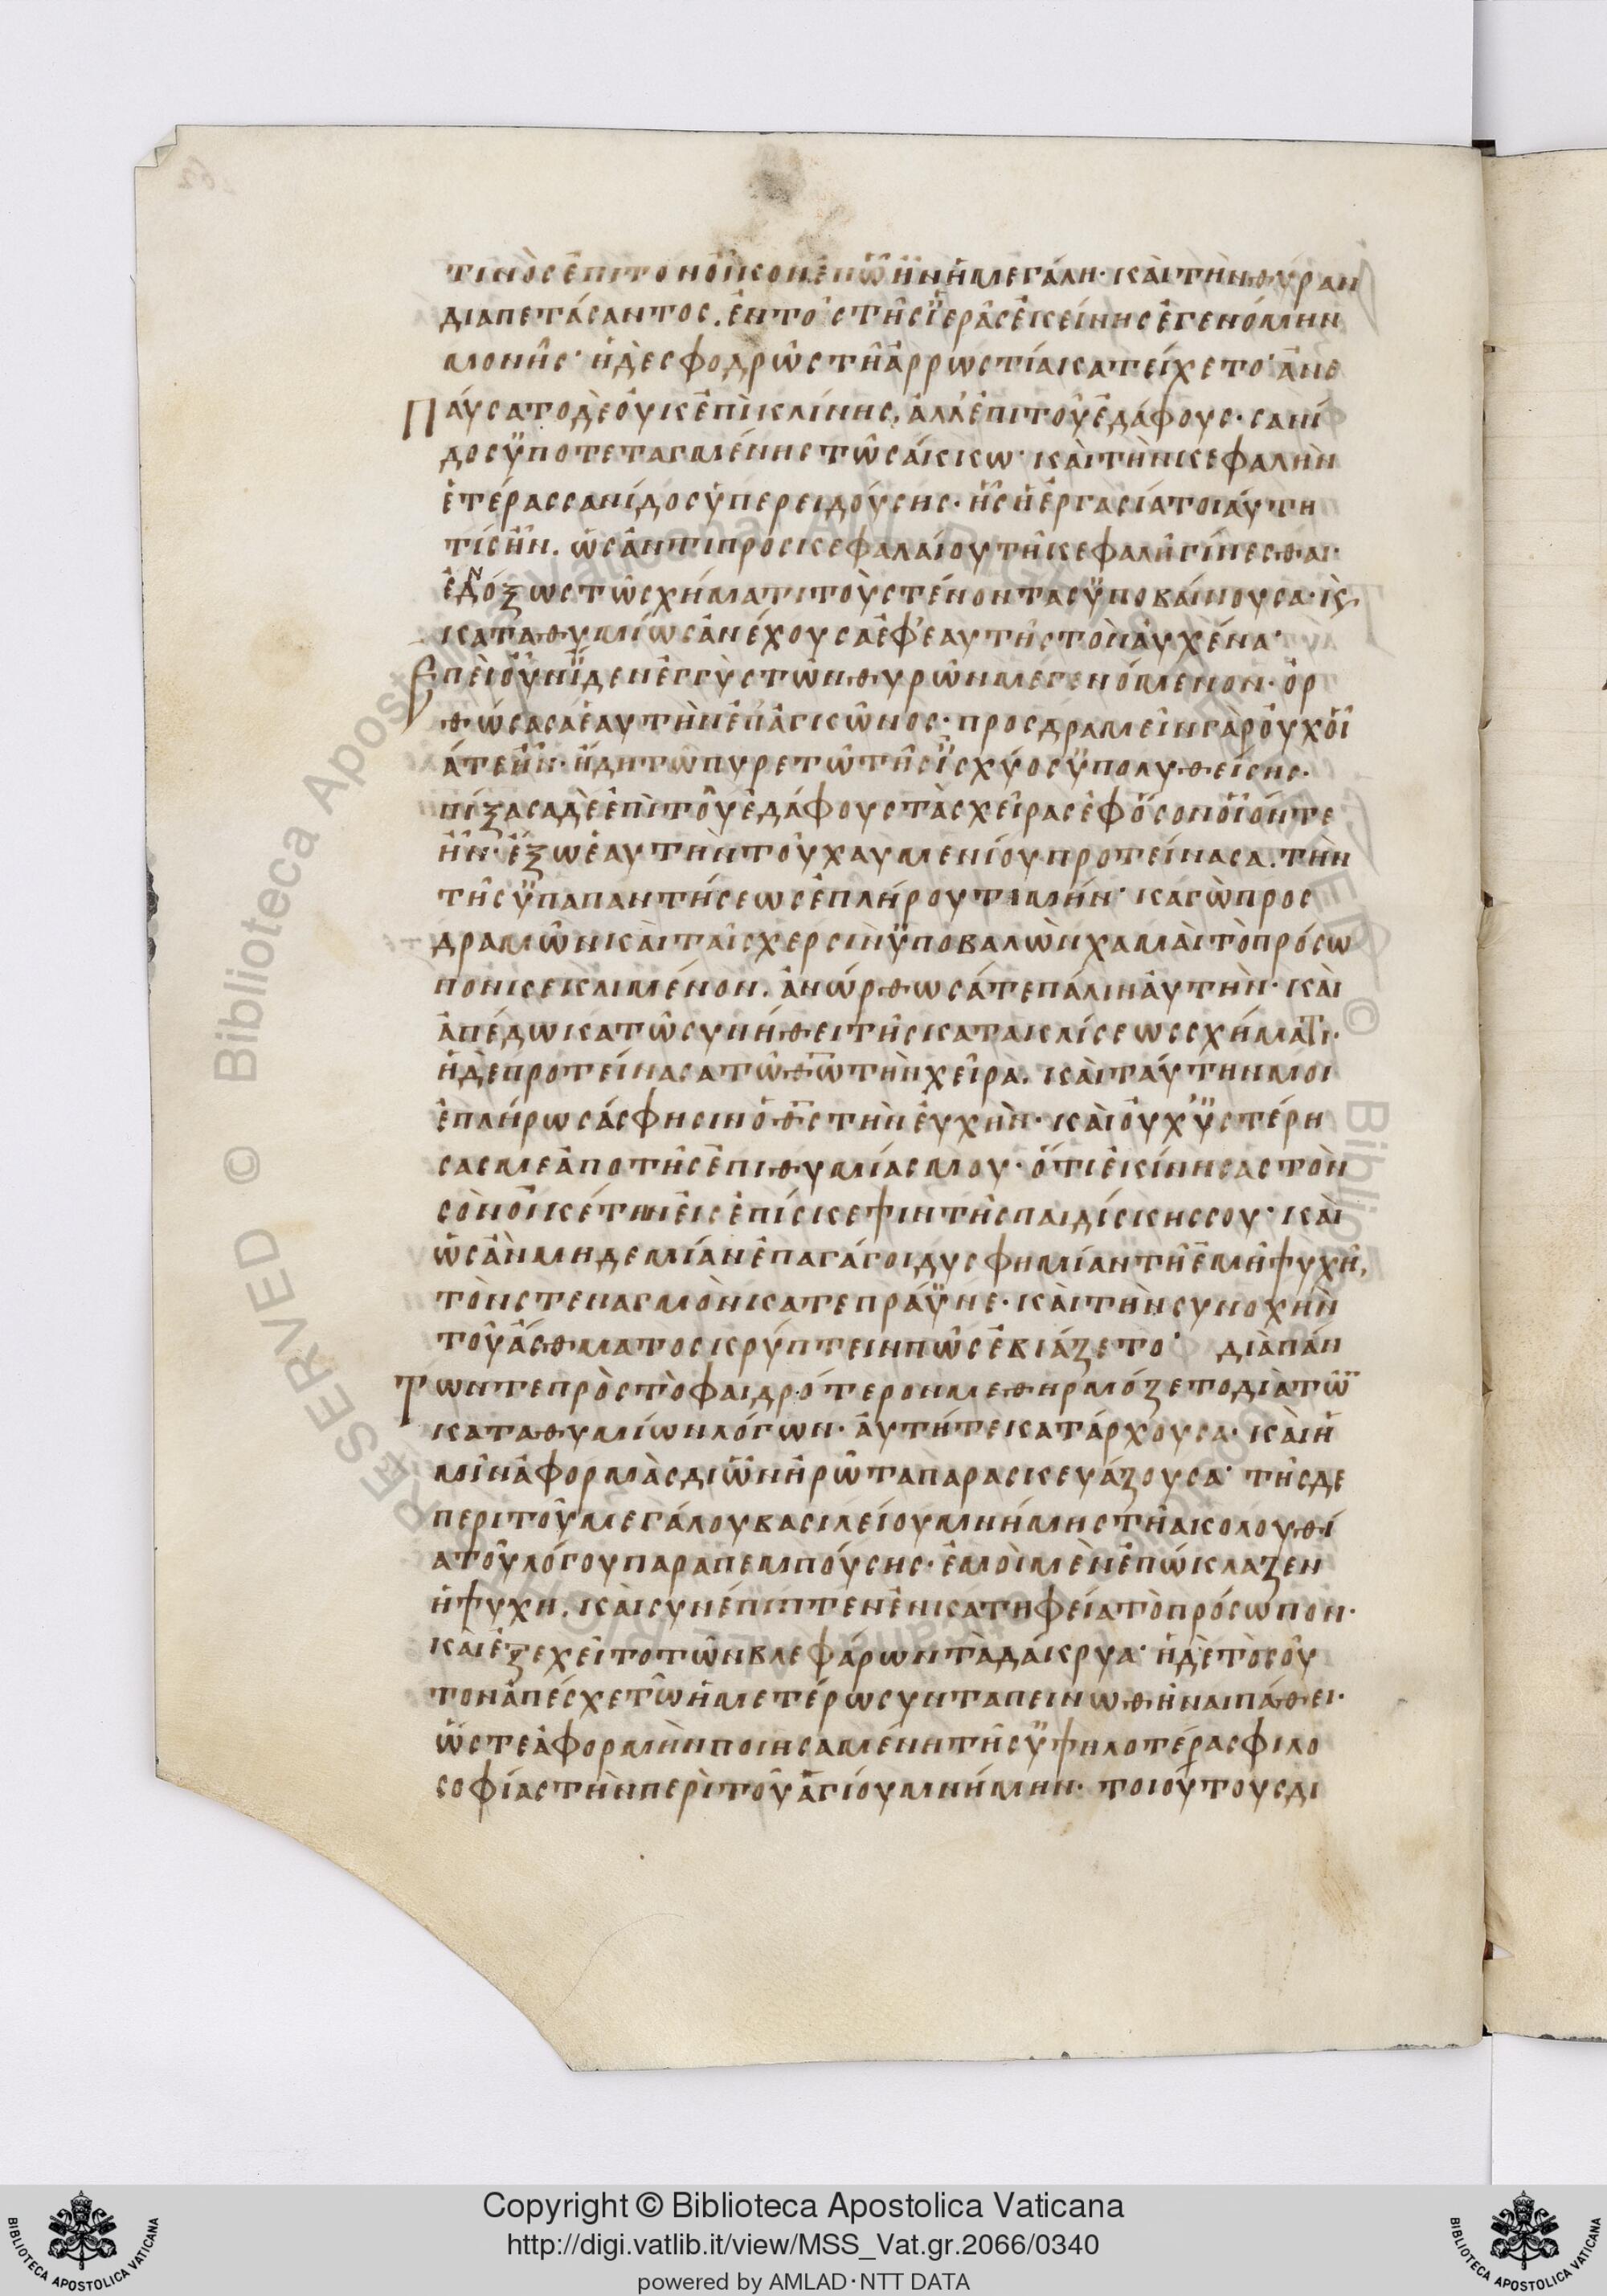 τινὸς ἐπὶ τὸν οἶκον ἐν ᾧ ἦν ἡ μεγάλη· καὶ τὴν θύραν
διαπετάσαντος. ἐντὸς τῆς ϊερᾶς ἐκείνης ἐγενόμην
μονῆς· ἡ δὲ σφοδρῶς τῆ ἀρρωστία κατείχετο· ἀνε
Παύσατο δὲ οὐκ ἐπὶ κλίνης, ἀλλ' ἐπὶ τοῦ ἐδάφους· σανί
δος ϋποτεταγμένης τῶ σάκκω· καὶ τὴν κεφαλὴν
ἑτέρας σανίδος ὑπερειδούσης· ἧς ἡ ἐργασία τοιαύτη
τίς ἦν. ὡς ἀντι προσκεφαλαίου τῆ κεφαλῆ γίνεσθαι·
ἐνδόξως τῶ σχήματι τοὺς τένοντας ϋποβαίνουσα· κ̀
καταθυμίως ἀνέχουσα ἐφ' ἑαυτῆς τὸν αὐχένα·
Ἐπεὶ οὖν ϊδεν ἐγγὺς τῶν θυρῶν με γενόμενον· ὀρ
θώσασα ἑαυτὴν ἐπ' ἀγκῶνος· προσδραμεῖν γὰρ οὐχ οἵ
ά τε ἦν· ἤδη τῶ πυρετῶ τῆς ϊσχύος ϋπολυθείσης·
πίξασα δὲ ἐπὶ τοῦ ἐδάφους τὰς χεῖρας ἐφ' ὅσον οἷόν τε
ἦν· ἔξω ἑαυτὴν τοῦ χαυμενίου προτείνασα. τὴν
τῆς ϋπαπαντήσεως ἐπλήρου τιμήν· καγὼ προς
δραμῶν καὶ ταῖς χερσὶν ϋποβαλὼν χαμαὶ τὸ πρόσω
πον κεκλιμένον. ἀνώρθωσά τε πάλιν αὐτὴν· καὶ
ἀπέδωκα τῶ συνήθει τῆς κατακλίσεως σχήματι·
ἡ δὲ προτείνασα τῶ θ͞ω τὴν χεῖρα. καὶ ταύτην μοι
ἐπλήρωσάς φησιν ὁ θ͞ς τὴν εὐχὴν· καὶ οὐχ' ϋστέρη
σας με ἀπο τῆς ἐπιθυμίας μου· ὅτι ἐκίνησας τὸν
σὸν οἰκέτην εἰς ἐπίσκεψιν τῆς παιδίσκης σου· καὶ
ὡς ἂν μηδεμίαν ἐπαγάγοι δυσφημίαν τῆ ἐμῆ ψυχῆ,
τὸν στεναγμὸν κατεπράϋνε· καὶ τὴν συνοχὴν
τοῦ ἄσθματος κρύπτειν πῶς ἐβιάζετο· διὰ πάν
Των τε πρὸς τὸ φαιδρότερον μεθηρμόζετο διὰ τῶ̅
καταθυμίων λόγων· αὐτή τε κατάρχουσα· καὶ ἡ
μῖν ἀφορμὰς δι' ὧν ἠρῶτα παρασκευάζουσα· τῆς δε
περι τοῦ μεγάλου βασιλείου μνήμης τῆ ἀκολουθί
α τοῦ λόγου παραπεμπούσης· ἐμοὶ μὲν ἐπώκλαζεν
ἡ ψυχη. καὶ συνέπιπτεν ἐν κατηφεία τὸ πρόσωπον·
και ἐξεχεῖτο τῶν βλεφάρων τὰ δάκρυα· ἡ δὲ τὸσοῦ
τον ἀπέσχε τῶ ἡμετέρω συνταπεινωθῆναι πάθει·
ὥστε ἀφορμὴν ποιησαμένη τῆς ϋψηλοτέρας φιλο
σοφίας τὴν περὶ τοῦ ἁγίου μνήμην· τοιούτους δι
Copyright © Biblioteca Apostolica Vaticana
http://digi.vatlib.it/view/MSS_Vat.gr.2066/0340
powered by AMLAD·NTT DATA